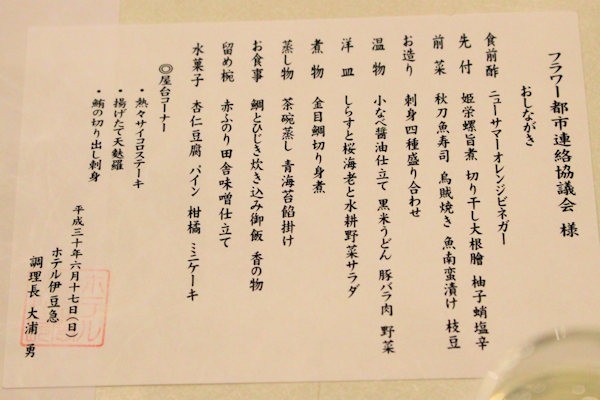 フラワー都市連絡協議会 様
おしながき
食前酢 ニューサマーオレンジビネガー
先付 姫栄螺旨煮 切り干し大根膾 柚子蛸塩辛
前菜 秋刀魚寿司 烏賊焼き 魚南蛮漬け 枝豆
お造り 刺身四種盛り合わせ
温物 小なべ醤油仕立て 黒米うどん 豚バラ肉 野菜
洋皿 しらすと桜海老と水耕野菜サラダ
煮物 金目鯛切り身煮
蒸し物 茶碗蒸し 青海苔餡掛け
お食事 鯛とひじき炊き込み御飯 香の物
留め椀 赤ふのり田舎味噌仕立て
水菓子 杏仁豆腐 パイン 柑橘 ミニケーキ
◎屋台コーナー
・熱々サイコロステーキ
・揚げたて天麩羅
・鮪の切り出し刺身
平成三十年六月十七日(日)
ホテル伊豆急
調理長 大浦 勇